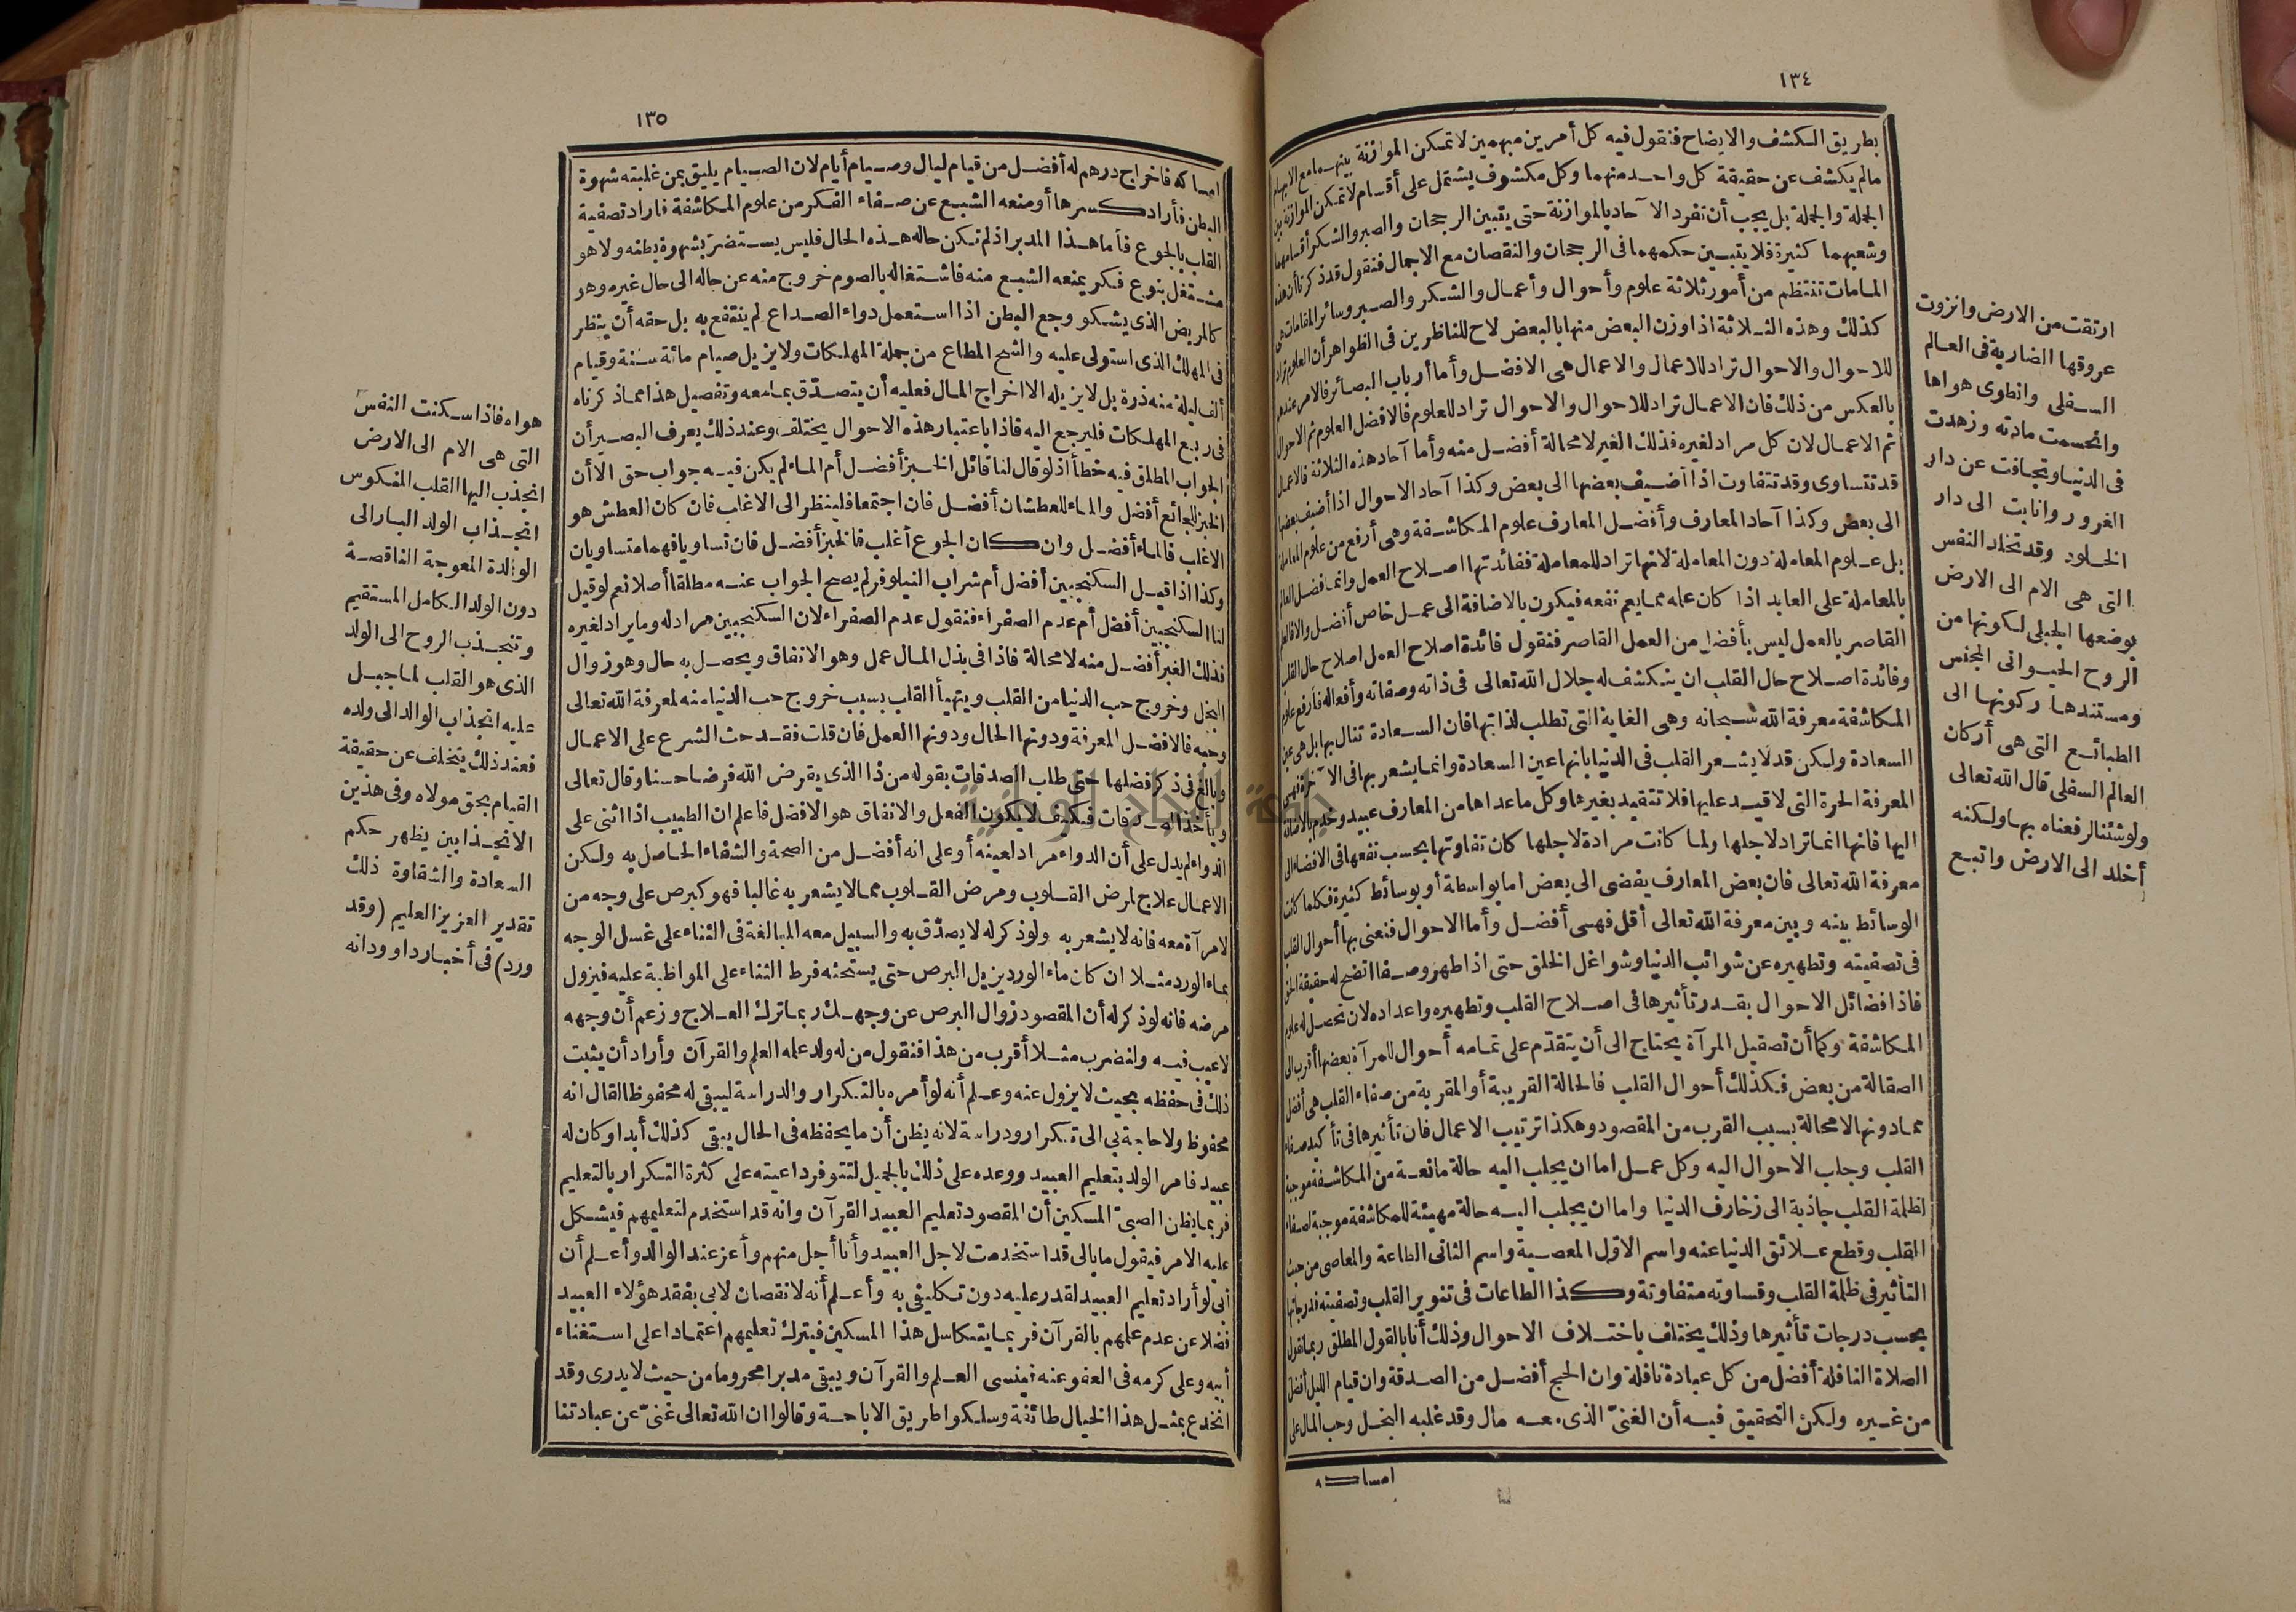 ١٣٤
بطريق الكشف والايضاح فنقول فيه كل أمرين مبهمين لا تمكن الموازنة بينهما مع الابهام
مالم يكشف عن حقيقة كل واحد منهما وكل مكشوف يشتمل على أقسام لا تمكن الموازنة بين
الجملة والجملة بل يجب أن تفرد الآحاد بالموازنة حتى يتبين الرجحان والصبر والشكر أقسامهما
وشعبهما كثيرة فلا يتبين حكمهما فى الرجحان والنقصان مع الاجمال فنقول قد ذكرنا أن هذه
المقامات تنتظم من أمور ثلاثة علوم وأحوال وأعمال والشكر والصبر وسائر المقامات هى
كذلك وهذه الثلاثة اذا وزن البعض منها بالبعض لاح للناظرين فى الظواهر أن العلوم تراد
للاحوال والاحوال تراد للاعمال والاعمال هى الافضل وأما أرباب البصائر فالامر عندهم
بالعكس من ذلك فان الاعمال تراد للاحوال والاحوال تراد للعلوم فالافضل العلوم ثم الاحوال
ثم الاعمال لان كل مراد لغيره فذلك الغير لا محالة أفضل منه وأما آحاد هذه الثلاثة فالاعمال
قد تتساوى وقد تتفاوت اذا أضيف بعضها الى بعض وكذا آحاد الاحوال اذا أضيف بعضها
الى بعض وكذا آحاد المعارف وأفضل المعارف علوم المكاشفة وهى أرفع من علوم المعاملة
بل علوم المعاملة دون المعاملة لانها تراد للمعاملة ففائدتها اصلاح العمل وانما فضل العالم
بالمعاملة على العابد اذا كان علمه مما يعم نفعه فيكون بالاضافة الى عمل خاص أفضل والا فالعلم
القاصر بالعمل ليس بأفضل من العمل القاصر فنقول فائدة اصلاح العمل اصلاح حال القلب
وفائدة اصلاح حال القلب ان ينكشف له جلال الله تعالى فى ذاته وصفاته وأفعاله فأرفع علوم
المكاشفة معرفة الله سبحانه وهى الغاية التى تطلب لذاتها فان السعادة تنال بها بل هى عين
السعادة ولكن قد لا يشعر القلب فى الدنيا بانها عين السعادة وانما يشعر بها فى الآخرة فهى
المعرفة الحرة التى لا قيد عليها فلا تتقيد بغيرها وكل ما عداها من المعارف عبيد وخدم بالاضافة
اليها فانها انما تراد لاجلها ولما كانت مرادة لاجلها كان تفاوتها بحسب نفعها فى الافضاء الى
معرفة الله تعالى فان بعض المعارف يفضى الى بعض اما بواسطة أو بوسائط كثيرة فكلما كانت
الوسائط بينه وبين معرفة الله تعالى أقل فهسى أفضل وأما الاحوال فنعنى بها أحوال القلب
فى تصفيته وتطهيره عن شوائب الدنيا وشواغل الخلق حتى اذا طهر وصفا اتضح له حقيقة الحق
فاذا فضائل الاحوال بقدر تأثيرها فى اصلاح القلب وتطهيره واعداده لان تحصل له علوم
المكاشفة وكما أن تصقيل المرآة يحتاج الى أن يتقدّم على تمامه أحوال للمرآة بعضها أقرب الى
الصقالة من بعض فكذلك أحوال القلب فالحالة القريبة أو المقربة من صفاء القلب هى أفضل
مما دونها لا محالة بسبب القرب من المقصود وهكذا ترتيب الاعمال فان تأثيرها فى تأكيد صفاء
القلب وجلب الاحوال اليه وكل عمل اما ان يجلب اليه حالة مانعة من المكاشفة موجبة
لظلمة القلب جاذبة الى زخارف الدنيا واما ان يجلب اليه حالة مهيئة للمكاشفة موجبة لصفاء
القلب وقطع علائق الدنيا عنه واسم الاوّل المعصية واسم الثانى الطاعة والمعاصى من حيث
التأثير فى ظلمة القلب وقساوته متفاوتة وكذا الطاعات فى تنوير القلب وتصفيته فدرجاتها
بحسب درجات تأثيرها وذلك يختلف باختلاف الاحوال وذلك أنا بالقول المطلق ربما نقول
الصلاة النافلة أفضل من كل عبادة نافلة وان الحج أفضل من الصدقة وان قيام الليل أفضل
من غيره ولكن التحقيق فيه أن الغنىّ الذى معه مال وقد غلبه البخل وحب المال على
امساكه
ارتقت من الارض وانزوت
عروقها الضاربة فى العالم
السفلى وانطوى هواها
وانحسمت مادته وزهدت
فى الدنيا وتجافت عن دار
الغرور وانابت الى دار
الخلود وقد تخلد النفس
التى هى الام الى الارض
بوضعها الجبلى لكونها من
الروح الحيوانى المجنس
ومستندها ركونها الى
الطبائع التى هى أركان
العالم السفلى قال الله تعالى
ولو شئنا لرفعناه بها ولكنه
أخلد الى الارض واتبع
١٣٥
امساكه فاخراج درهم له أفضل من قيام ليال وصيام أيام لان الصيام يليق بمن غلبته شهوة
البطن فأراد كسرها أو منعه الشبع عن صفاء الفكر من علوم المكاشفة فاراد تصفية
القلب بالجوع فأما هذا المدبر اذ لم تكن حاله هذه الحال فليس يستضرّ بشهوة بطنه ولا هو
مشتغل بنوع فكر يمنعه الشبع منه فاشتغاله بالصوم خروج منه عن حاله الى حال غيره وهو
كالمريض الذى يشكو وجع البطن اذا استعمل دواء الصداع لم ينتفع به بل حقه أن ينظر
فى المهلك الذى استولى عليه والشح المطاع من جملة المهلكات ولا يزيل صيام مائة سنة وقيام
ألف ليلة منه ذرة بل لا يزيله الا اخراج المال فعليه أن يتصدّق بما معه وتفصيل هذا مما ذكرناه
فى ربع المهلكات فليرجع اليه فاذا باعتبار هذه الاحوال يختلف وعند ذلك يعرف البصير أن
الجواب المطلق فيه خطأ اذ لو قال لنا قائل الخبز أفضل أم الماء لم يكن فيه جواب حق الا أن
الخبز للجائع أفضل والماء للعطشان أفضل فان اجتمعا فلينظر الى الاغلب فان كان العطش هو
الاغلب فالماء أفضل وان كان الجوع أغلب فالخبز أفضل فان تساويا فهما متساويان
وكذا اذا قيل السكنجبين أفضل أم شراب النيلوفر لم يصح الجواب عنه مطلقا أصلا نعم لو قيل
لنا السكنجبين أفضل أم عدم الصفراء فنقول عدم الصفراء لان السكنجبين مراد له وما يراد لغيره
فذلك الغير أفضل منه لا محالة فاذا فى بذل المال عمل وهو الانفاق ويحصل به حال وهو زوال
البخل وخروج حب الدنيا من القلب ويتهيأ القلب بسبب خروج حب الدنيا منه لمعرفة الله تعالى
وحبه فالافضل المعرفة ودونها الحال ودونها العمل فان قلت فقد حث الشرع على الاعمال
وبالغ فى ذكر فضلها حتى طلب الصدقات بقوله من ذا الذى يقرض الله قرضا حسنا وقال تعالى
ويأخذ الصدقات فكيف لا يكون الفعل والانفاق هو الافضل فاعلم ان الطبيب اذا اثنى على
الدواء لم يدل على أن الدواء مراد لعينه أو على انه أفضل من الصحة والشفاء الحاصل به ولكن
الاعمال علاج لمرض القلوب ومرض القلوب مما لا يشعر به غالبا فهو كبرص على وجه من
لامرآة معه فانه لا يشعر به ولو ذكر له لا يصدّق به والسبيل معه المبالغة فى الثناء على غسل الوجه
بماء الورد مثلا ان كان ماء الورد يزيل البرص حتى يستحثه فرط الثناء على المواظبة عليه فيزول
مرضه فانه لو ذكر له أن المقصود زوال البرص عن وجهك ربما ترك العلاج وزعم أن وجهه
لا عيب فيه ولنضرب مثلا أقرب من هذا فنقول من له ولد علمه العلم والقرآن وأراد أن يثبت
ذلك فى حفظه بحيث لا يزول عنه وعلم أنه لو أمره بالتكرار والدراسة ليبقى له محفوظا لقال انه
محفوظ ولا حاجة بى الى تكرار ودراسة لانه يظن أن ما يحفظه فى الحال يبقى كذلك أبدا وكان له
عبيد فامر الولد بتعليم العبيد ووعده على ذلك بالجميل لتتوفر داعيته على كثرة التكرار بالتعليم
فربما يظن الصبىّ المسكين أن المقصود تعليم العبيد القرآن وانه قد استخدم لتعليمهم فيشكل
عليه الامر فيقول ما بالى قد استخدمت لاجل العبيد وأنا أجل منهم وأعز عند الوالد وأعلم أن
أبى لو أراد تعليم العبيد لقدر عليه دون تكليفى به وأعلم أنه لا نقصان لابى بفقد هؤلاء العبيد
فضلا عن عدم علمهم بالقرآن فربما يتكاسل هذا المسكين فيترك تعليمهم اعتمادا على استغناء
أبيه وعلى كرمه فى العفو عنه فينسى العلم والقرآن ويبقى مدبرا محروما من حيث لا يدرى وقد
انخدع بمثل هذا الخيال طائفة وسلكوا طريق الاباحة وقالوا ان الله تعالى غنىّ عن عبادتنا
هواه فاذا سكنت النفس
التى هى الام الى الارض
انجذب اليها القلب المنكوس
انجذاب الولد البار الى
الوالدة المعوجة الناقصة
دون الوالد الكامل المستقيم
وتنجذب الروح الى الولد
الذى هو القلب لما جبل
عليه انجذاب الوالد الى ولده
فعند ذلك يتخلف عن حقيقة
القيام بحق مولاه وفى هذين
الانجذابين يظهر حكم
السعادة والشقاوة ذلك
تقدير العزيز العليم (وقد
ورد) فى أخبار داود انه
جامعة النجاح الوطنية